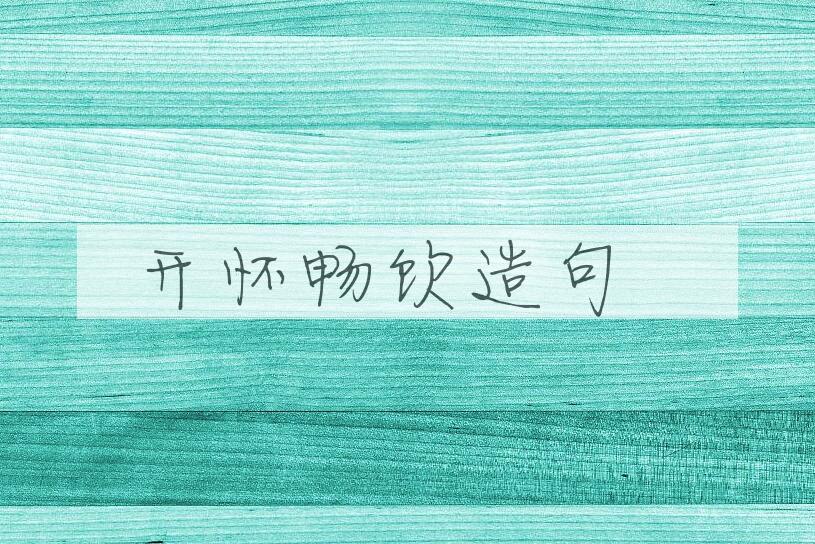 开怀畅饮造句